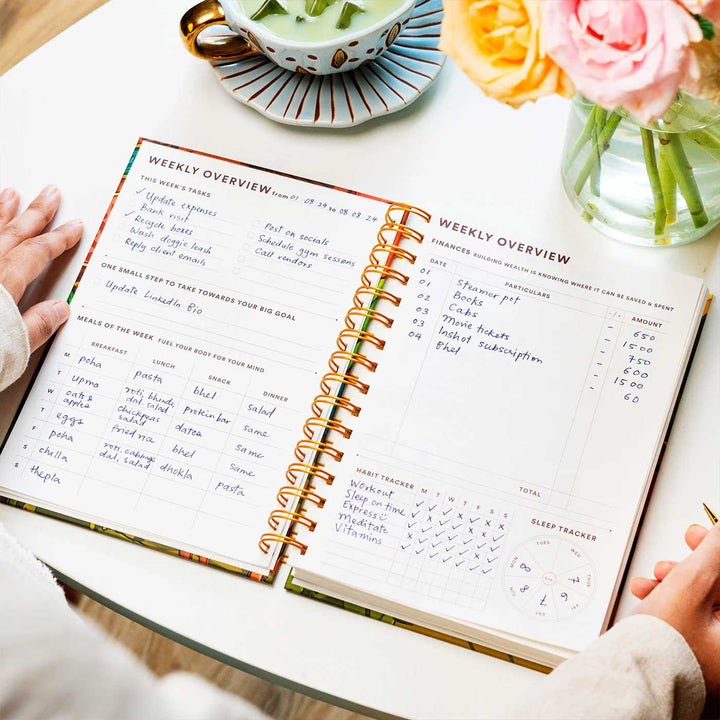 WEEKLY OVERVIEW from 01.08.24 to 08.08.24
THIS WEEK'S TASKS
Update expenses
Bank visit
Recycle boxes
Wash doggie leash
Reply client emails
Post on socials
Schedule gym sessions
Call vendors
ONE SMALL STEP TO TAKE TOWARDS YOUR BIG GOAL
Update LinkedIn Bio
MEALS OF THE WEEK FUEL YOUR BODY FOR YOUR MIND
BREAKFAST LUNCH SNACK DINNER
M poha pasta bhel salad
T upma roti, bhindi, dal, salad protein bar same
W oats & apples chickpeas salad dates same
T eggs fried rice bhel same
F poha roti, cabbage dal, salad dhokla pasta
S chilla
S thepla
WEEKLY OVERVIEW
FINANCES BUILDING WEALTH IS KNOWING WHERE IT CAN BE SAVED & SPENT
DATE PARTICULARS -/+ AMOUNT
01 Steamer pot - 650
01 Books - 1500
02 Cabs - 750
03 Movie tickets - 600
03 Inshot subscription - 1500
04 Bhel - 60
TOTAL
HABIT TRACKER M T W T F S S
Workout
Sleep on time
Express
Meditate
Vitamins
SLEEP TRACKER
TUES WED
FRI
SAT
8 7 8 7